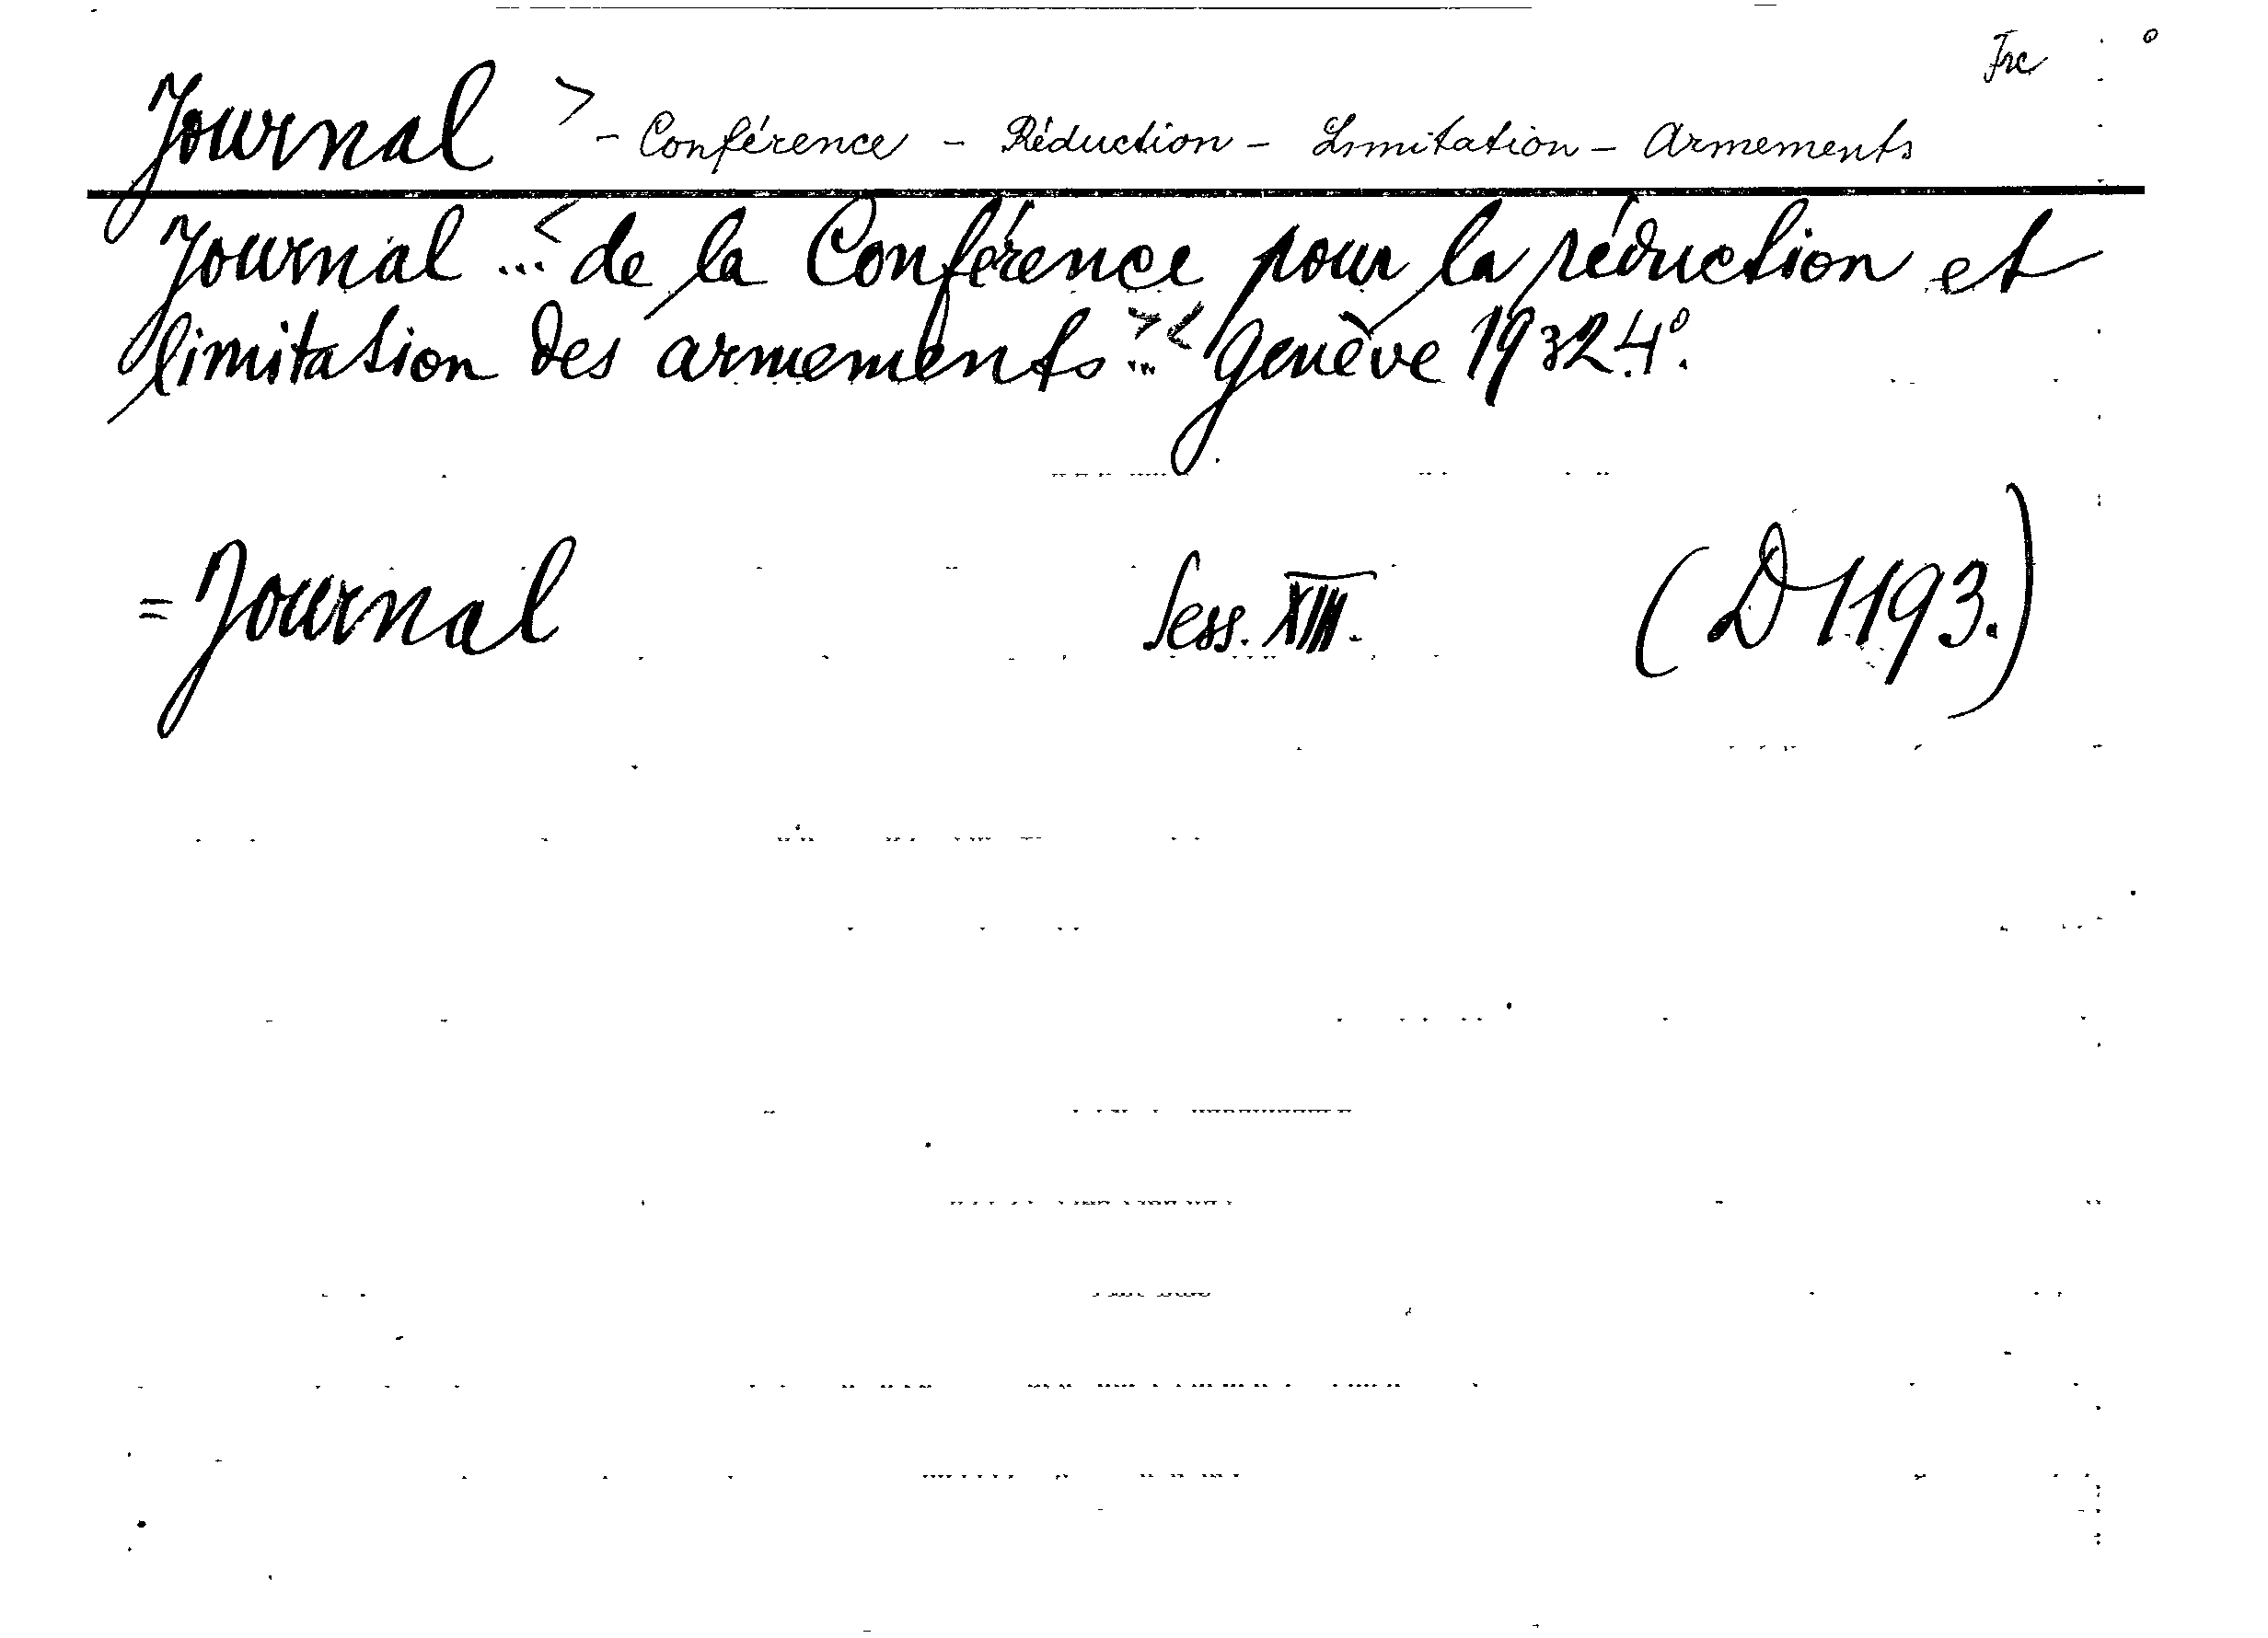 Frc
Journal > - Conférence - Réduction - Limitation - Armements
Journal ...< de la Conférence pour la réduction et
limitation des armements >...< Genève 1932. 4°.
= Journal Sess. XIII. (D 1193.)